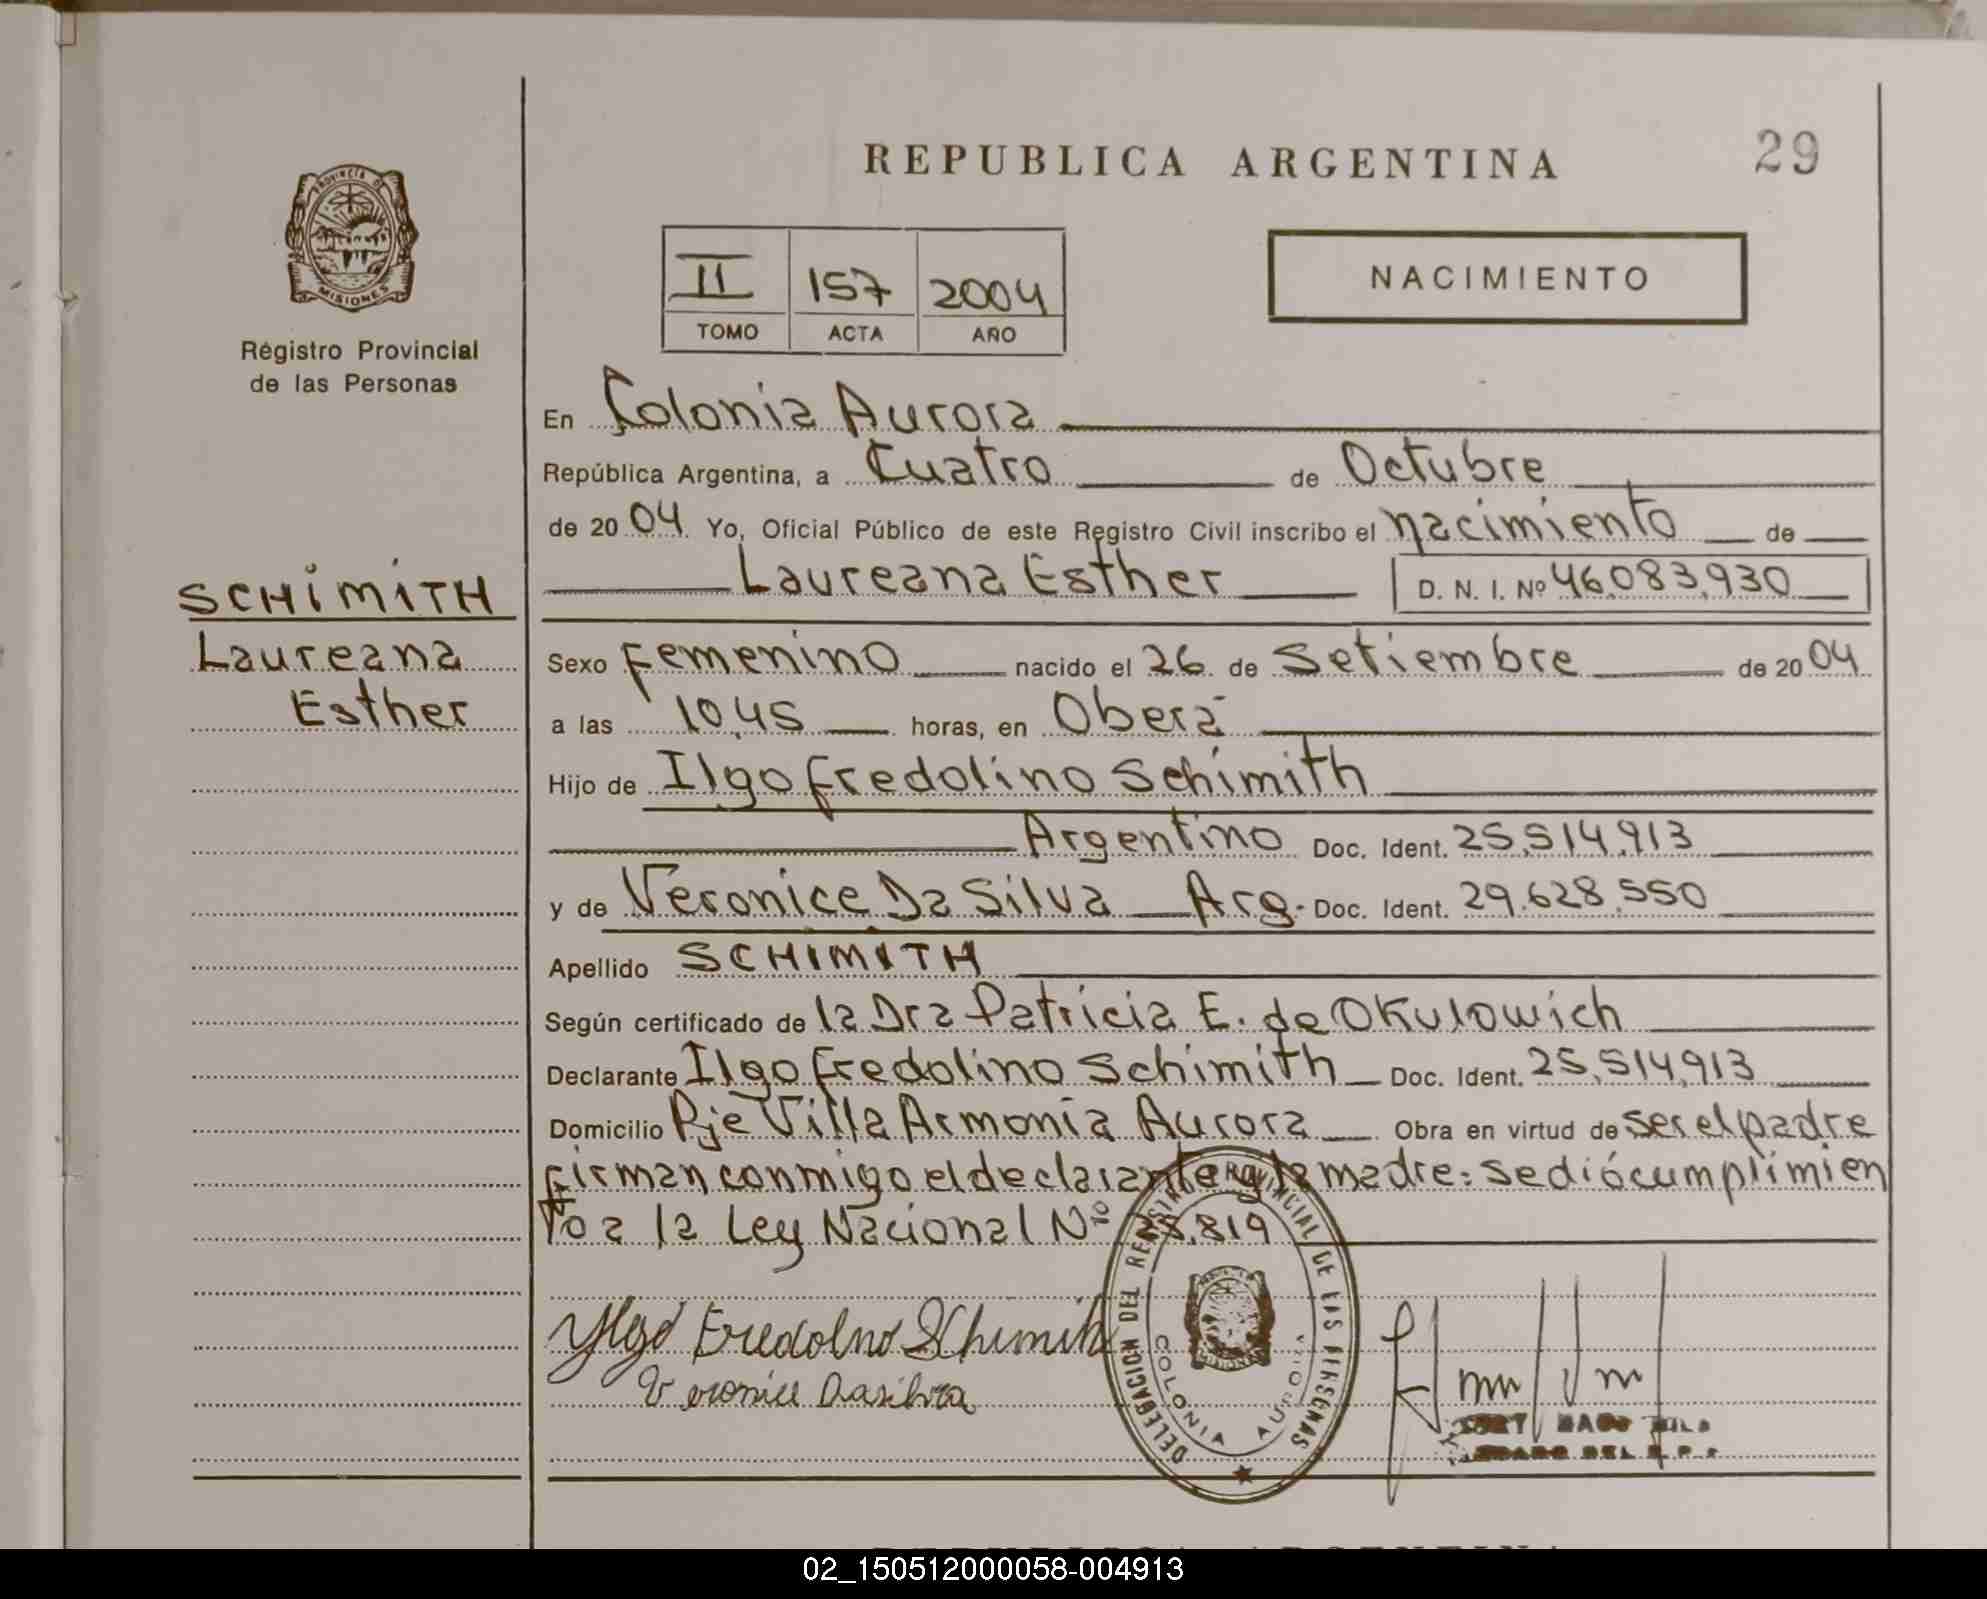 REPUBLICA ARGENTINA
29
PROVINCIA DE
MISIONES
Régistro Provincial
de las Personas
II 157 2004
TOMO ACTA AÑO
NACIMIENTO
En Colonia Aurora
República Argentina, a Cuatro de Octubre
de 2004 Yo, Oficial Público de este Registro Civil inscribo el nacimiento de
Laureana Esther D. N. I. Nº 46.083,930
SCHIMITH
Laureana
Esther
Sexo Femenino nacido el 26 de Setiembre de 2004
a las 10,45 horas, en Oberá
Hijo de Ilgo Fredolino Schimith
Argentino Doc. Ident. 25.514.913
y de Veronice Da Silva Arg. Doc. Ident. 29.628.550
Apellido SCHIMITH
Según certificado de la Dra Patricia E. de Okulowich
Declarante Ilgo Fredolino Schimith Doc. Ident. 25.514,913
Domicilio Pje Villa Armonia Aurora Obra en virtud de ser el padre
firman conmigo el declarante y la madre: se dió cumplimien
to a la Ley Nacional Nº .819
Ylgo Fredolno Schimith
Veronice Dasilva
DELEGACION DEL REGISTRO PROVINCIAL DE LAS PERSONAS
COLONIA AURORA
MISIONES
DEL
REPUBLICA ARGENTINA
02_150512000058-004913